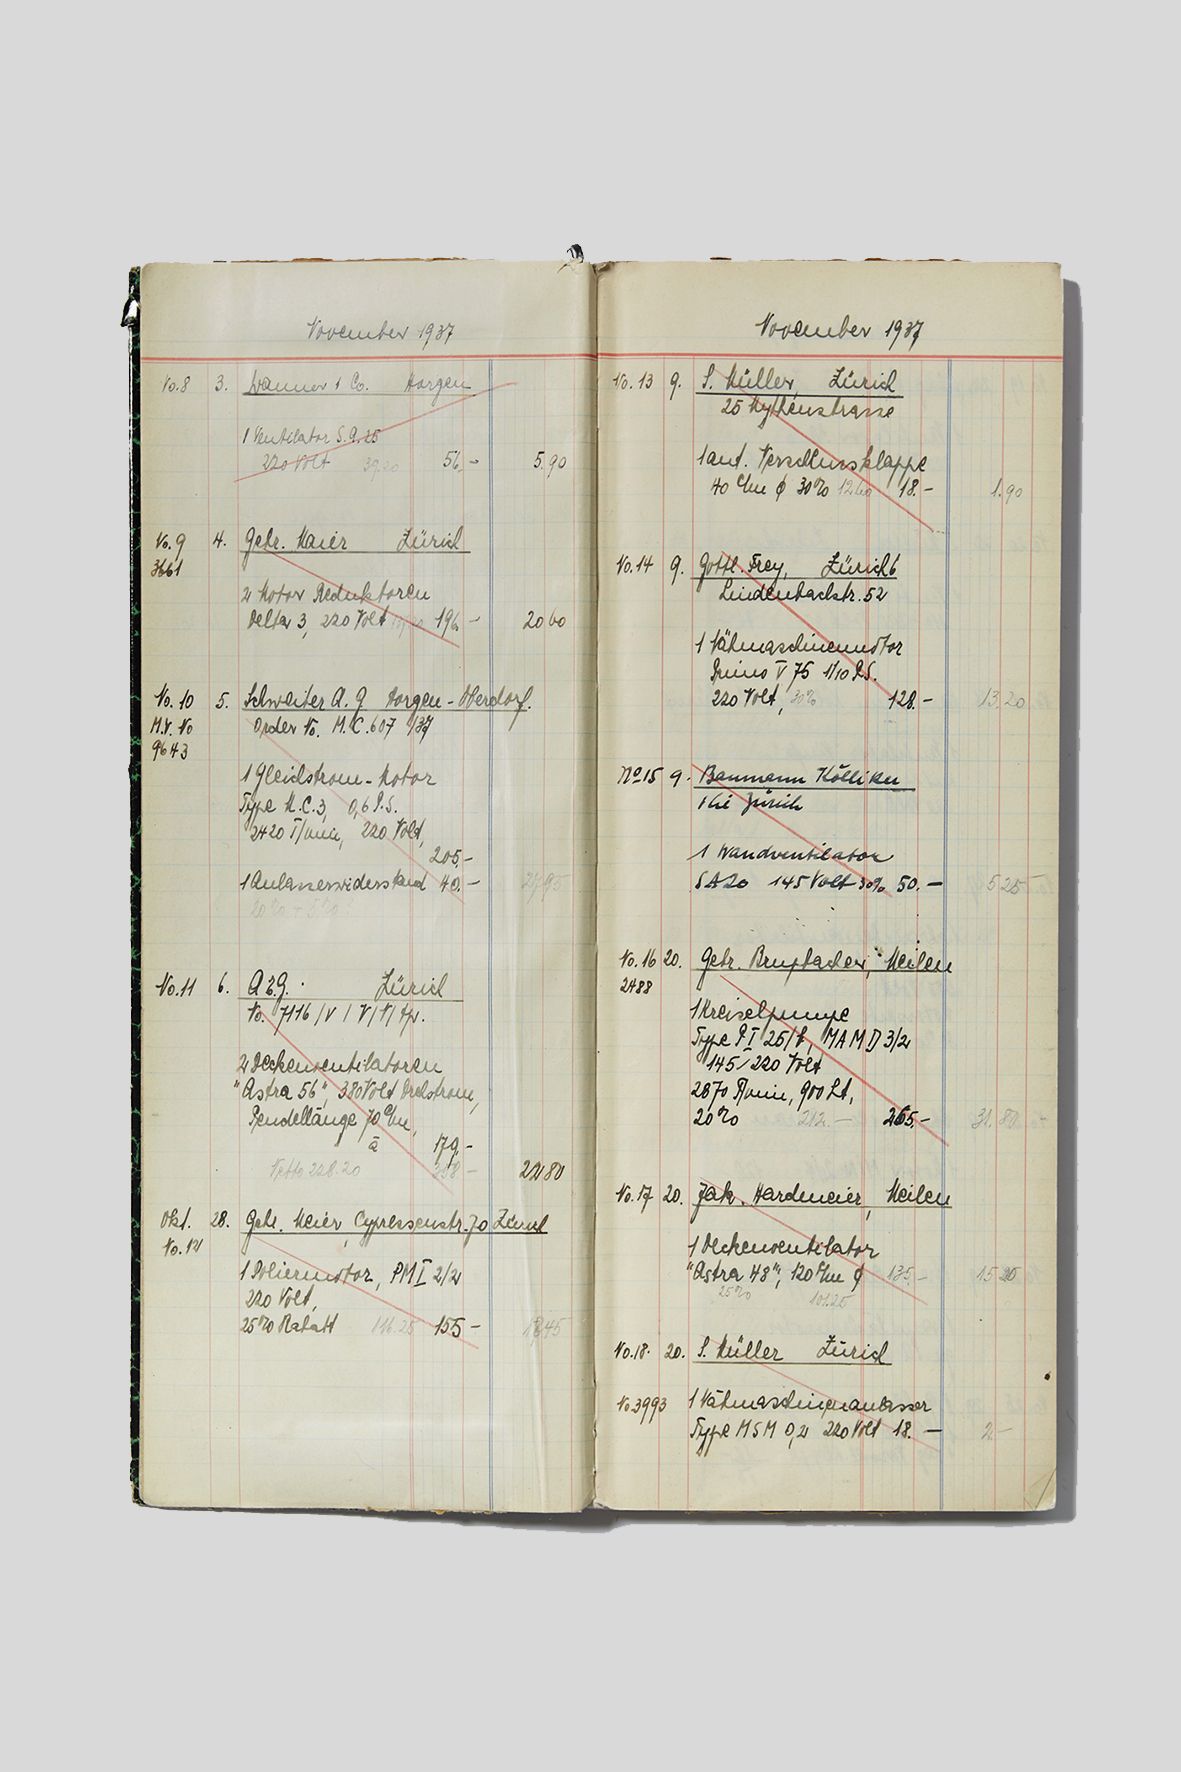 November 1937
No.8 3. Wanner & Co. Horgen
1 Ventilator S.A.25
220 Volt 39.20 56.- 5.90
No. 9 4. Gebr. Maier Zürich
3661
2 Motor Reduktoren
Delta 3, 220 Volt 196.- 20 60
No. 10 5. Schweiter A.G Horgen-Oberdorf.
M.Y. No Order No. M.C.607 /37
9643
1 Gleichstrom-Motor
Type M.C.3, 0,6 P.S.
2420 T/min, 220 Volt,
205.-
1 Anlasserwiderstand 40.-
20% + 5%
No.11 6. A.E.G. Zürich
No. 7116/V/V/V/
2 Deckenventilatoren
"Astra 56", 380 Volt Drehstrom,
Pendellänge 70 c/m,
à 179.-
Netto 228.20 358.- 2280
Okt. 28. Gebr. Meier, Cypressenstr. 70 Zürich
No. 12
1 Poliermotor, PM I 2/2
220 Volt,
25% Rabatt 116.25 155.-
November 1937
No. 13 9. S. Müller, Zürich
25 Mythenstrasse
1 aut. Verschlussklappe
40 c/m ϕ 30% 12.60 18.- 1.90
No.14 9. Gottl. Frey, Zürich 6
Lindenbachstr. 52
1 Nähmaschinenmotor
V 75 1/10 P.S.
220 Volt, 30% 128.- 13.20
No 15 9. Baumann Kölliker
& Cie Zürich
1 Wandventilator
SA20 145 Volt 30% 50.- 525
No. 16 20. Gebr. Brupbacher, Meilen
2488
1 Kreiselpumpe
Type P I 25/f, MAM D 3/2
145/220 Volt
2870 Rmin, 900 Lt,
20% 212.- 265.- 31.80
No. 17 20. Jak. Hardmeier, Meilen
1 Deckenventilator
"Astra 48", 120 c/m ϕ 135.-
25% 101.25
No. 18. 20. S. Müller Zürich
No 3993 1 Nähmaschinenanlasser
Type MSM 0,2 220 Volt 18.- 2.-